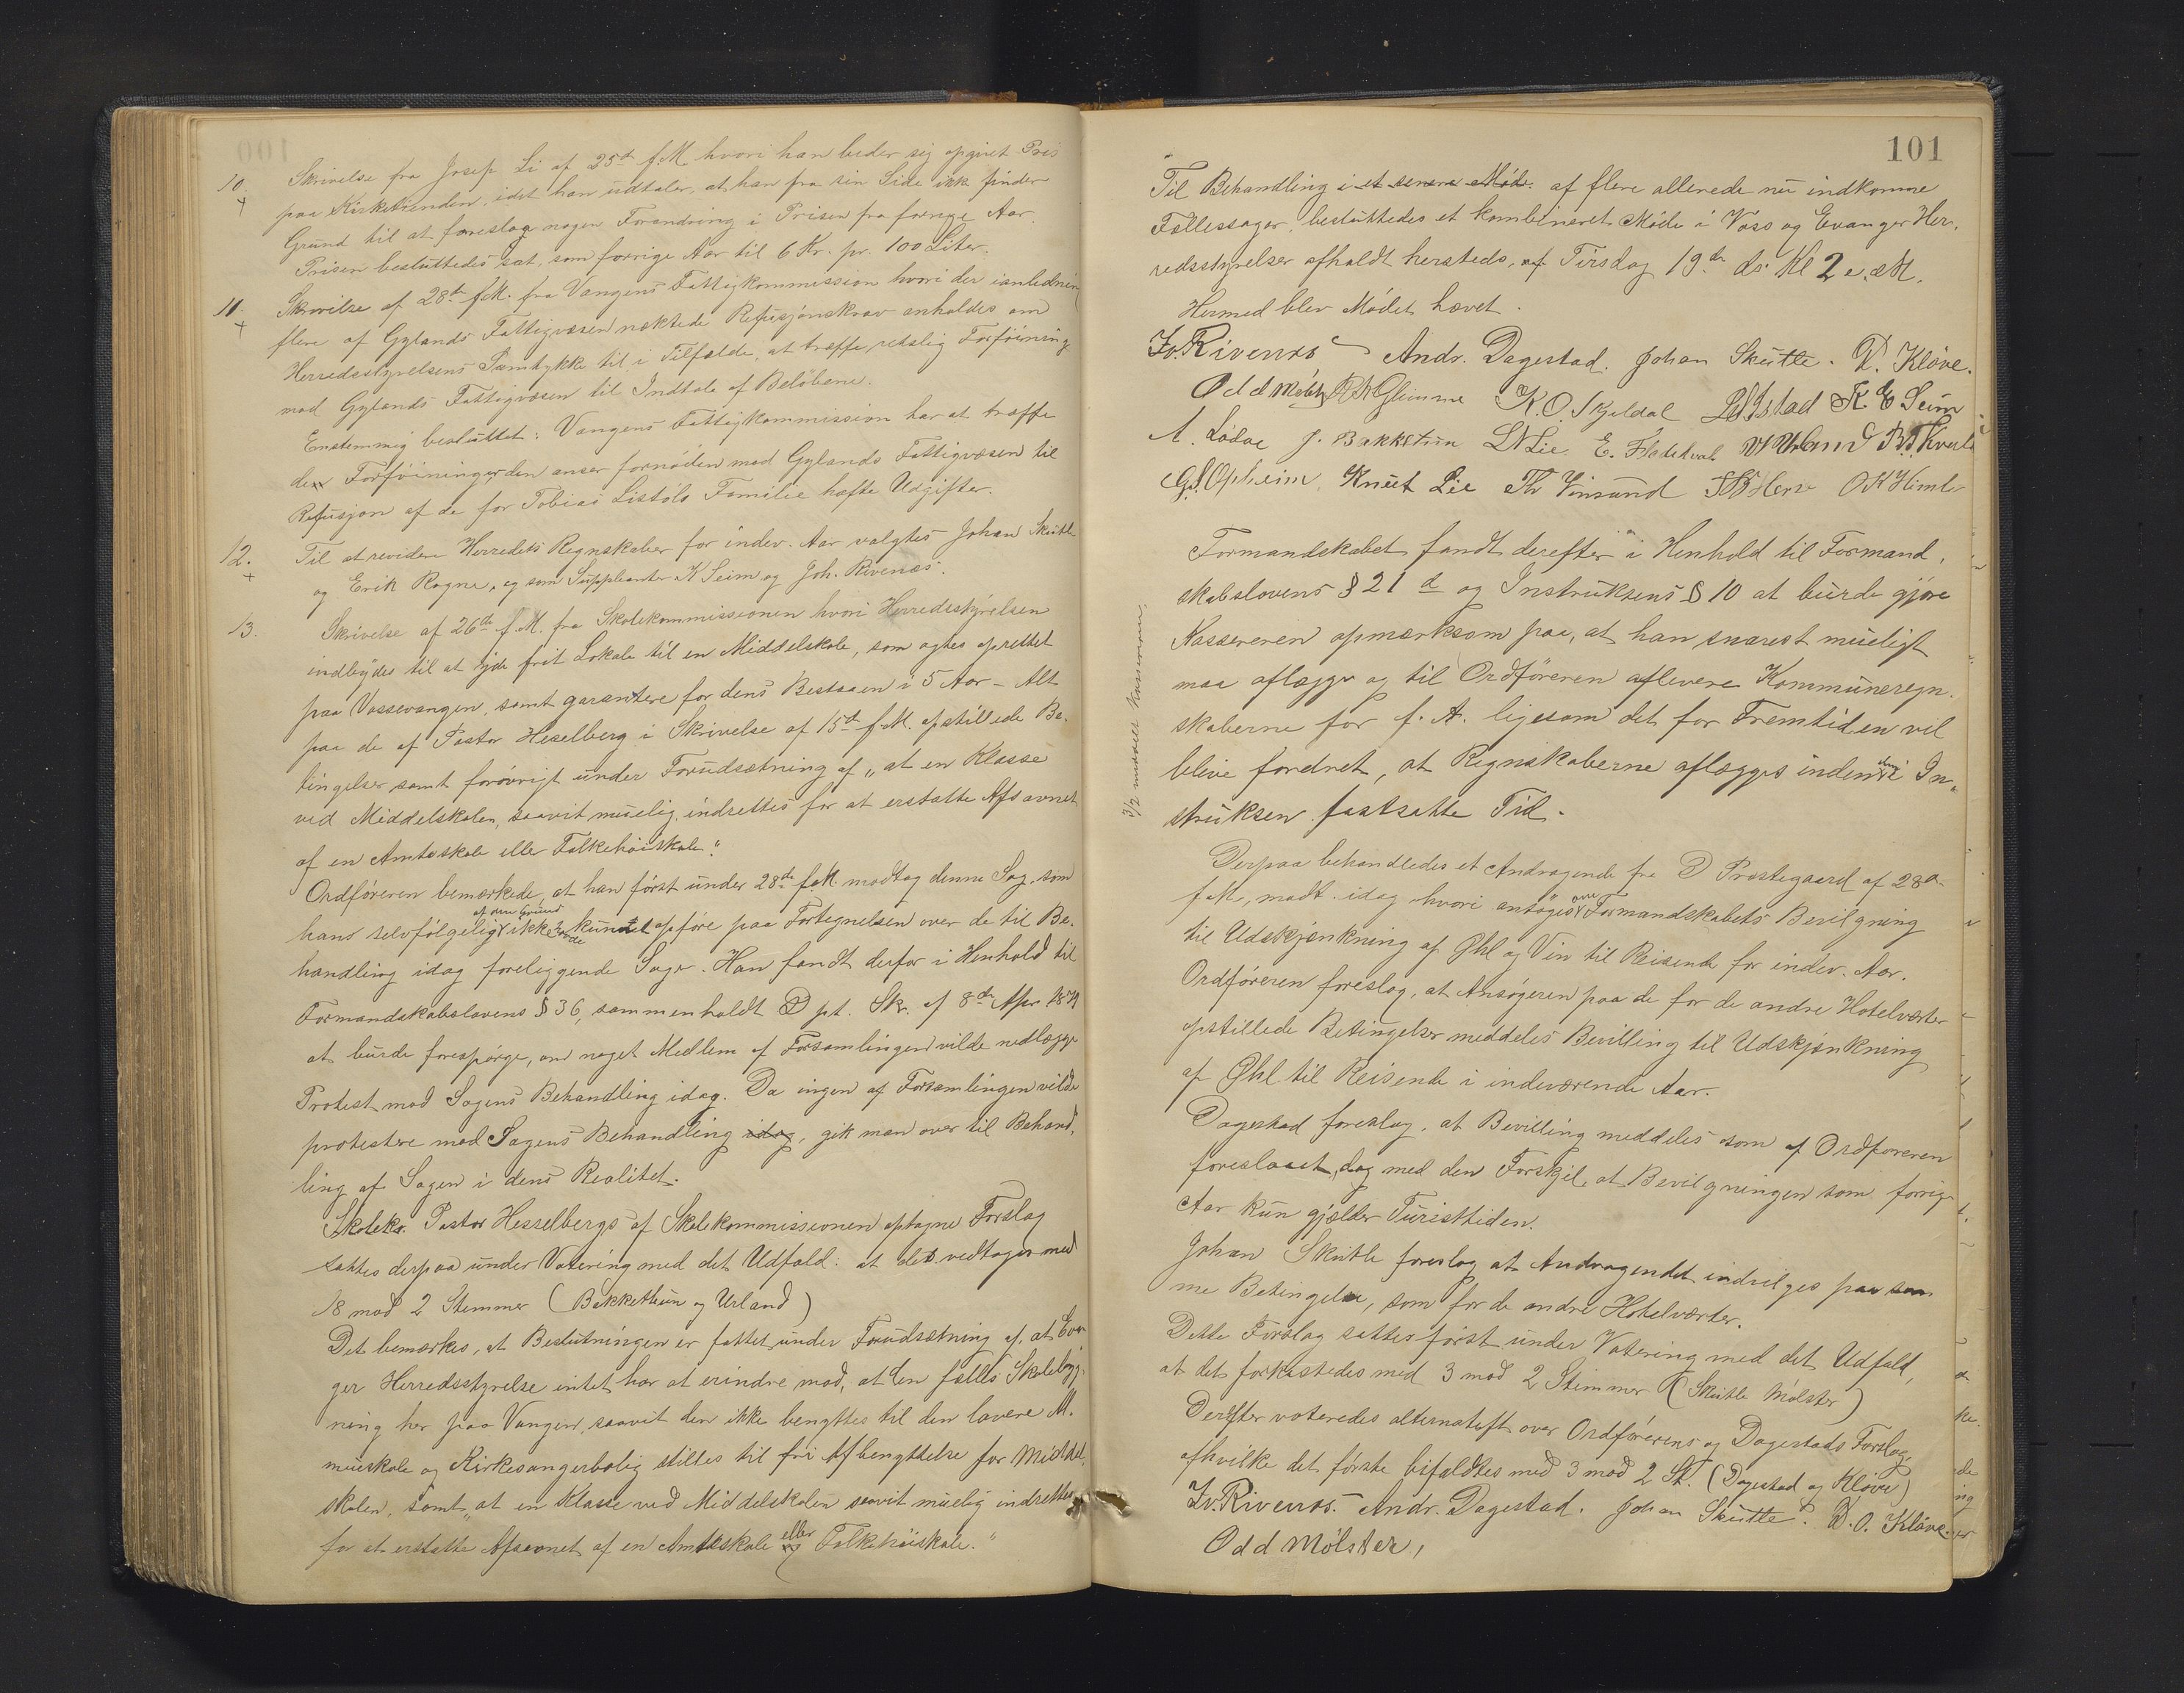 10. Skrivelse fra Josep Li af 25de f.M. hvori han beder sig opgivet Pris
+ paa Kirketienden, idet han udtaler, at han fra sin Side ikke finder
Grund til at foreslaa nogen Forandring i Prisen fra forrige Aar.
Prisen besluttedes sat som forrige Aar til 6 Kr. pr. 100 Liter.
11. Skrivelse af 28de f.M. fra Vangens Fattigkommission hvori der ianledning
+ flere af Gylands Fattigvæsen nægtede Refusjonskrav anholdes om
Herredsstyrelsens Samtykke til i Tilfælde, at træffe retslig Forføining
mod Gylands Fattigvæsen til Indtale af Beløbene.
Enstemmig besluttet: Vangens Fattigkommission har at træffe
de Forføininger den anser fornøden mod Gylands Fattigvæsen til
Refusjon af de for Tobias Listøls Familie hafte Udgifter.
12. Til at revidere Herredets Regnskaber for indev. Aar valgtes Johan Skutle
+ og Erik Rogne, og som Suppleanter K Seim og Joh. Rivenæs.
13. Skrivelse af 26de f.M. fra Skolekommissionen hvori Herredsstyrelsen
indbydes til at yde frit Lokale til en Middelskole, som agtes oprettet
paa Vossevangen, samt garantere for dens Bestaaen i 5 Aar – Alt
paa de af Pastor Hesselberg i Skrivelse af 15de f.M. opstillede Be-
tingelser samt forøvrigt under Forudsætning af „at en Klasse
ved Middelskolen, saavit muelig, indrettes for at erstatte Afsavnet
af en Amtsskole eller Folkehøiskole."
Ordføreren bemærkede, at han først under 28de f.M. modtog denne Sag, som
af den Grund
hans selvfølgelig ikke havde kunnet opføre paa Fortegnelsen over de til Be-
handling idag foreliggende Sager. Han fandt derfor i Henhold til
Formandskabslovens § 36, sammenholdt Dpt. Skr. af 8de Apr. 1879
at burde forespørge, om noget Medlem af Forsamlingen vilde nedlægge
Protest mod Sagens Behandling idag. Da ingen af Forsamlingen vilde
protestere mod Sagens Behandling idag, gik man over til Behand-
ling af Sagen i dens Realitet.
Skoleko. Pastor Hesselbergs af Skolekommissionen optagne Forslag
sattes derpaa under Votering med det Udfald: at det vedtoges med
18 mod 2 Stemmer (Bakkethun og Urland)
Det bemærkes, at Beslutningen er fattet under Forudsætning af, at Evan-
ger Herredsstyrelse intet har at erindre mod, at den fælles Skolebyg-
ning her paa Vangen, saavit den ikke benyttes til den lavere Al-
mueskole og Kirkesangerbolig stilles til fri Afbenyttelse for Middel-
skolen, samt „at en Klasse ved Middelskolen saavit muelig indrettes
for at erstatte Afsavnet af en Amtsskole eller Folkehøiskole."
101
Til Behandling i et senere Møde af flere allerede nu indkomne
Fællessager, besluttedes et kombineret Møde i Voss og Evanger Her-
redsstyrelser afholdt hersteds, af Tirsdag 19de ds. Kl 2 e.M.
Hermed blev Mødet hævet.
Iv. Rivenæs Andr. Dagestad. Johan Skutle. D. Kløve.
Odd Mølster Glimme K.O. Skjeldal K E Seim
A. Lødve J. Bakkethun LNLie E. Flatekval Urland
G.S. Opheim, Knut Lie Th Vinsand OKHimle
3/2 meddelt Kassereren.
Formandskabet fandt derefter i Henhold til Formand-
skabslovens § 21 d og Instruksens § 10 at burde gjøre
Kassereren opmærksom paa, at han snarest mueligt
maa aflægge og til Ordføreren aflevere Kommuneregn-
skaberne for f. A. ligesom det for Fremtiden vil
blive fordret, at Regnskaberne aflægges inden den i In-
struksen fastsatte Tid.
Derpaa behandledes et Andragende fra D Prestegaard af 28de
f.M., modt. idag hvori ansøges om Formandskabets Bevilgning
til Udskjænkning af Øhl og Vin til Reisende for indev. Aar.
Ordføreren foreslog, at Ansøgeren paa de for de andre Hotelværter
opstillede Betingelser meddeles Bevilling til Udskjænkning
af Øhl til Reisende i indeværende Aar.
Dagestad foreslog, at Bevilling meddeles som af Ordføreren
foreslaaet, dog med den Forskjel, at Bevilgningen som forrige
Aar kun gjælder Turisttiden.
Johan Skutle foreslog at Andragendet indvilges paa sam-
me Betingelse, som for de andre Hotelværter.
Dette Forslag sattes først under Votering med det Udfald,
at det forkastedes med 3 mod 2 Stemmer (Skutle Mølster)
Derefter voteredes alternatift over Ordførerens og Dagestads Forslag,
afhvilke det første bifaldtes med 3 mod 2 St. (Dagestad og Kløve)
Iv. Rivenæs. Andr. Dagestad. Johan Skutle. D.O. Kløve.
Odd Mølster,